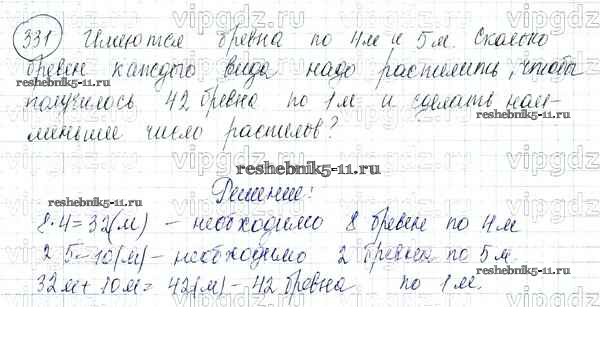 331 Имеются бревна по 4м и 5м. Сколько
бревен каждого вида надо распилить, чтобы
получилось 42 бревна по 1м и сделать наи-
меньшее число распилов?
Решение:
8·4=32(м) – необходимо 8 бревен по 4м
2 5=10(м) – необходимо 2 бревна по 5м.
32м+10м=42(м) – 42 бревна по 1м.
vipgdz.ru
reshebnik5-11.ru